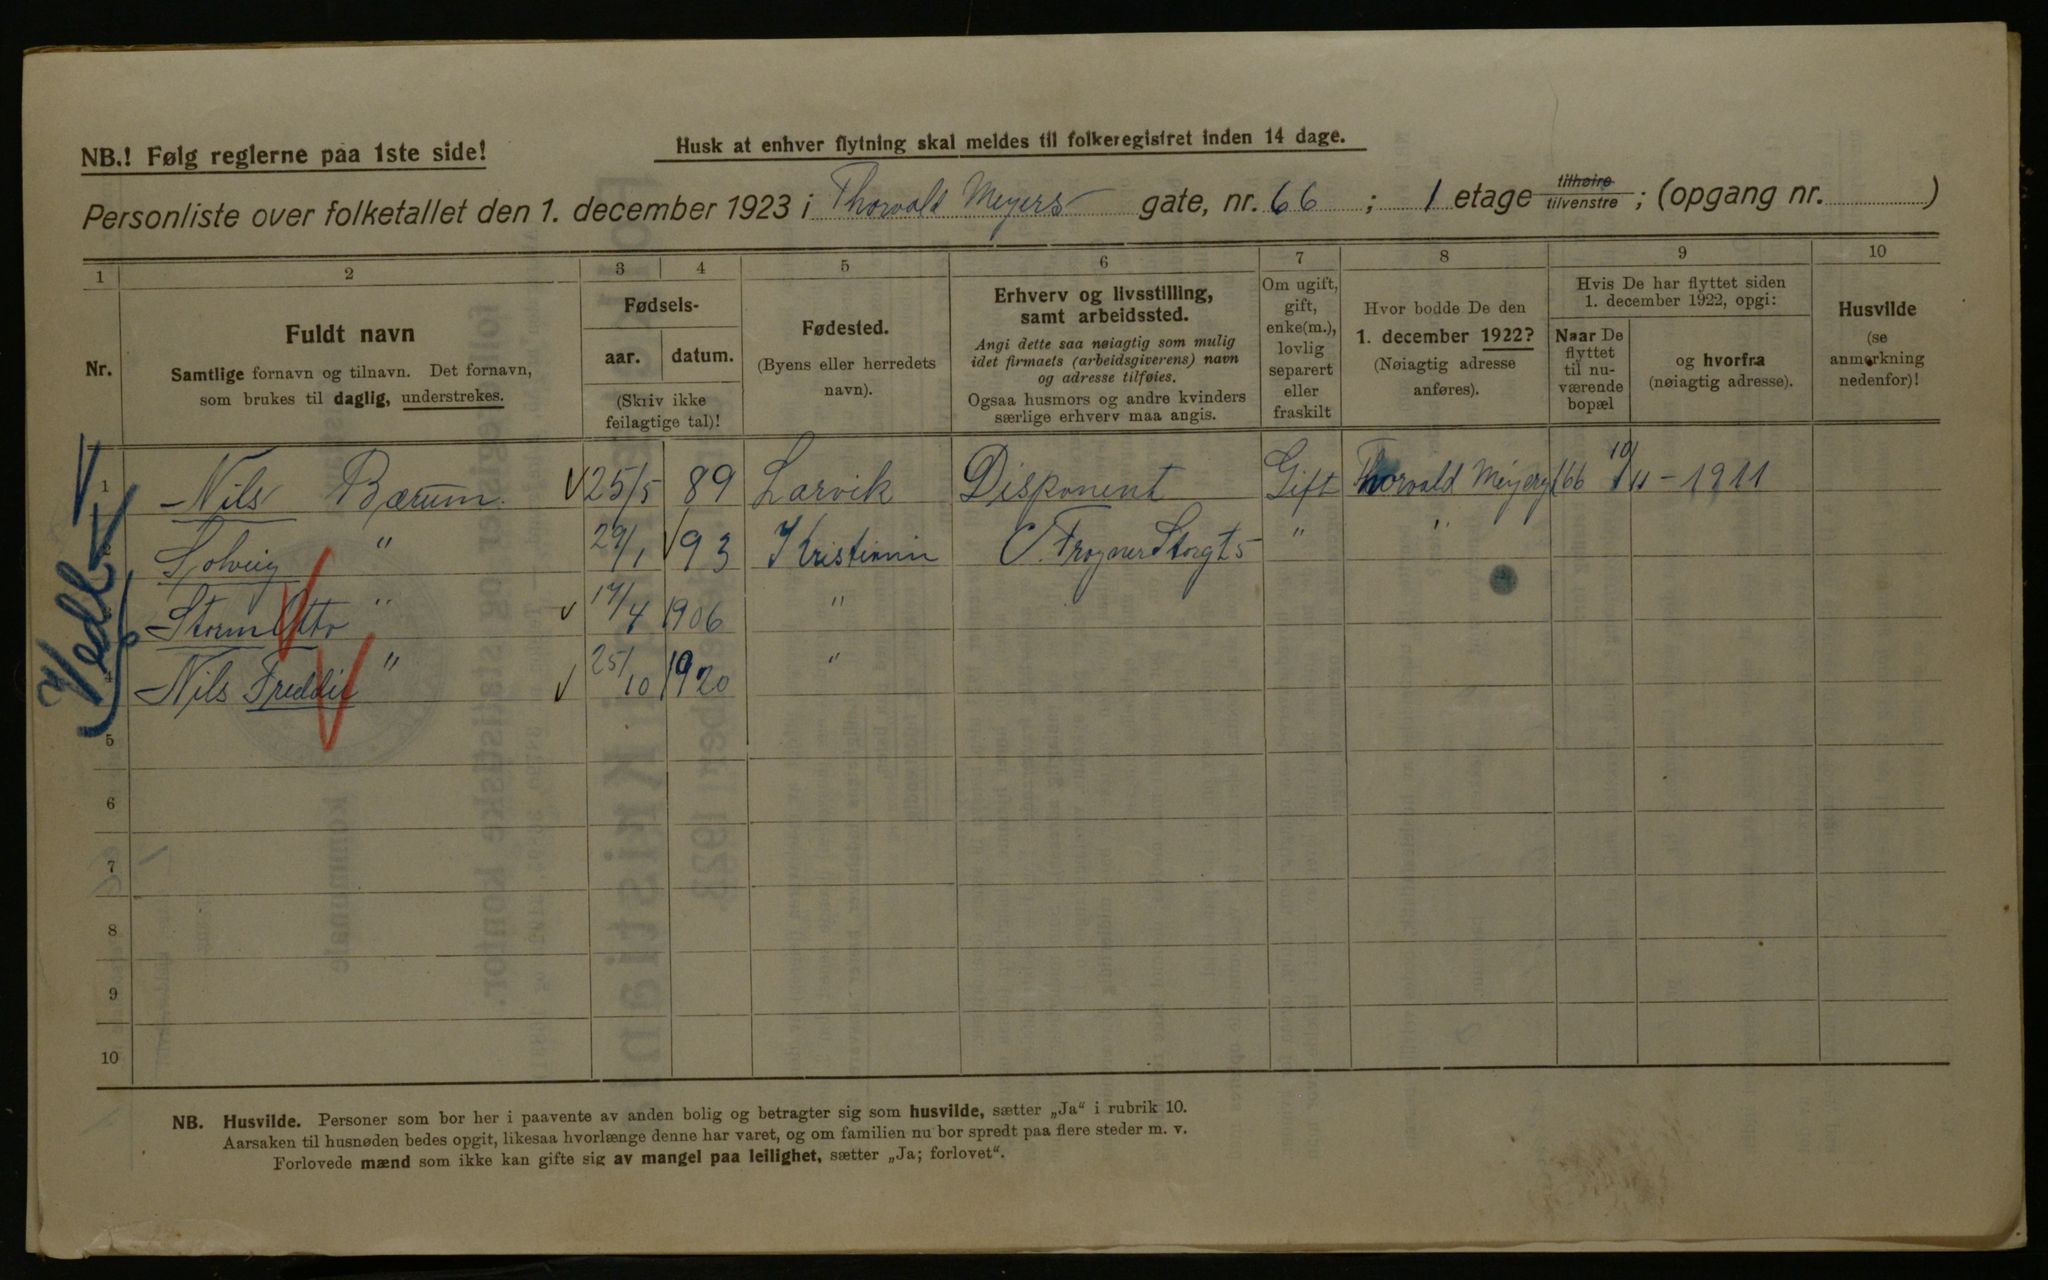 NB.! Følg reglerne paa 1ste side!
Husk at enhver flytning skal meldes til folkeregistret inden 14 dage.
Personliste over folketallet den 1. december 1923 i Thorvald Meyers gate, nr. 66 ; 1 etage tilhøire tilvenstre ; (opgang nr. )
1 2 3 4 5 6 7 8 9 10
Nr.
Fuldt navn
Samtlige fornavn og tilnavn. Det fornavn,
som brukes til daglig, understrekes.
Fødsels-
aar. datum.
(Skriv ikke
feilagtige tal)!
Fødested.
(Byens eller herredets
navn).
Erhverv og livsstilling,
samt arbeidssted.
Angi dette saa nøiagtig som mulig
idet firmaets (arbeidsgiverens) navn
og adresse tilføies.
Ogsaa husmors og andre kvinders
særlige erhverv maa angis.
Om ugift,
gift,
enke(m.),
lovlig
separert
eller
fraskilt
Hvor bodde De den
1. december 1922?
(Nøiagtig adresse
anføres).
Hvis De har flyttet siden
1. december 1922, opgi:
Naar De
flyttet
til nu-
værende
bopæl
og hvorfra
(nøiagtig adresse).
Husvilde
(se
anmerkning
nedenfor)!
1 Nils Bærum 25/5 89 Larvik Disponent Gift Thorvald Meyersgt 66 10/11 - 1911
Solveig " 29/1 93 Kristiania Frogner Storgt 5 " "
Storm Otto " 17/4 1906 "
4 Nils Freddie " 25/10 1920 "
5
6
7
8
9
10
NB. Husvilde. Personer som bor her i paavente av anden bolig og betragter sig som husvilde, sætter „Ja“ i rubrik 10.
Aarsaken til husnøden bedes opgit, likesaa hvorlænge denne har varet, og om familien nu bor spredt paa flere steder m. v.
Forlovede mænd som ikke kan gifte sig av mangel paa leilighet, sætter „Ja; forlovet“.